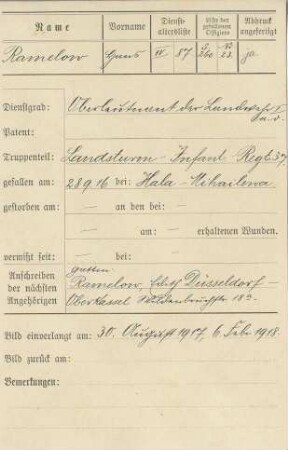 Name Vorname Dienstaltersliste Liste der gefallenen Offiziere Abdruck angefertigt
Ramelow Hans IV 87 S. 260 Nr. 23. ja
Dienstgrad: Oberleutnant der Landw.
Patent:
Truppenteil: Landsturm-Infant. Regt. 37
gefallen am: 28 9 16 bei: Hala-Mihailewa
gestorben am: — an den bei: —
— am: — erhaltenen Wunden.
vermißt seit: — bei:
Anschreiben der nächsten Angehörigen
Gattin
Ramelow, Edith Düsseldorf-
Oberkassel Wildenbruchstr. 18
Bild einverlangt am: 30. August 1917, 6. Febr. 1918.
Bild zurück am:
Bemerkungen: